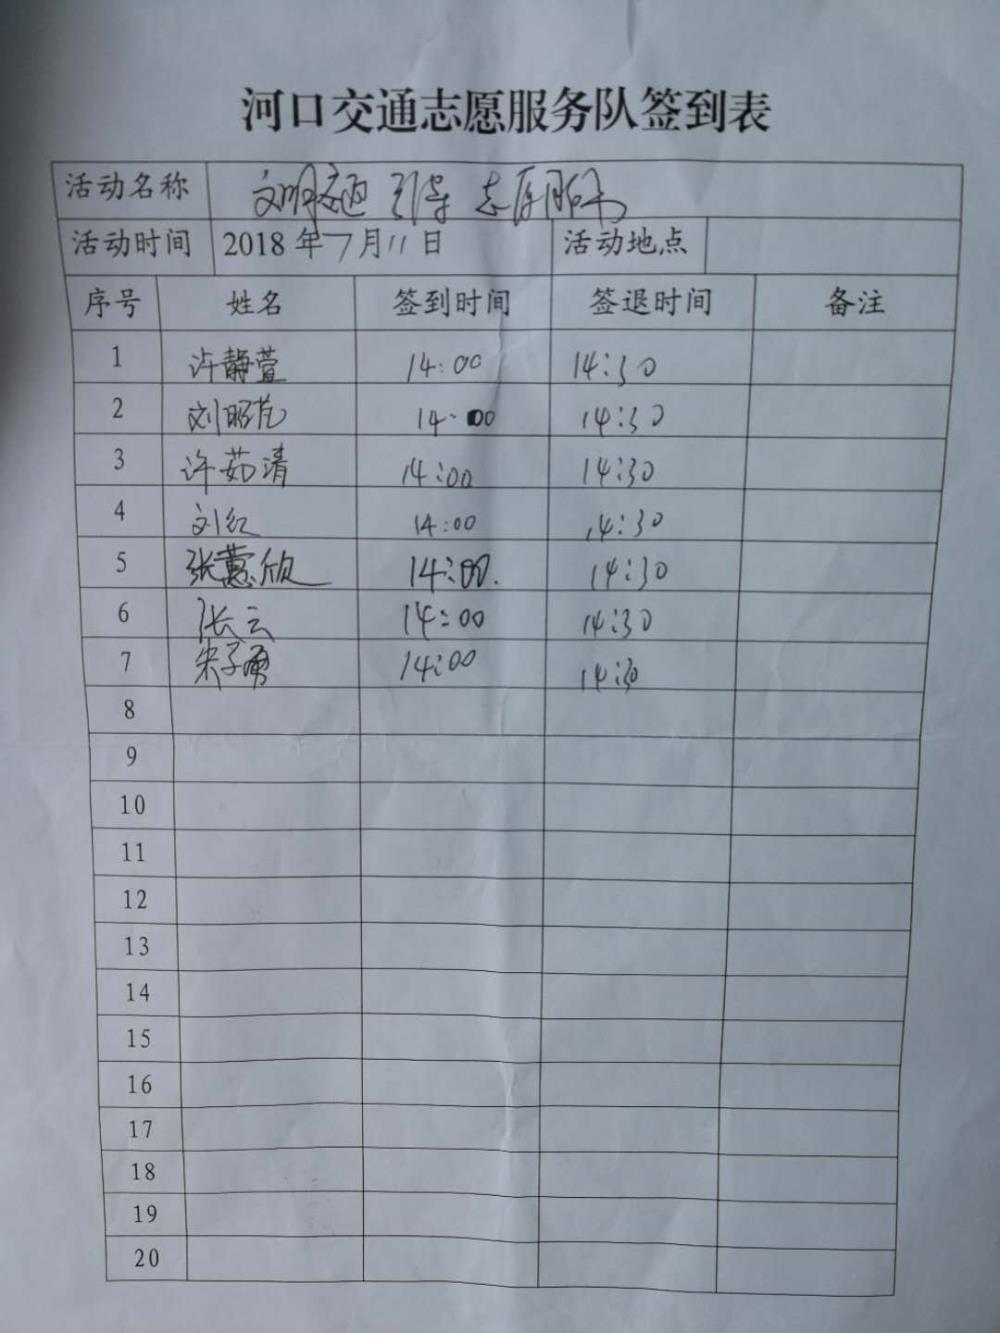 河口交通志愿服务队签到表
活动名称 文明交通 引导 志愿服务
活动时间 2018年7月11日 活动地点
序号 姓名 签到时间 签退时间 备注
1 许静萱 14:00 14:30
2 刘昭 14:00 14:30
3 许茹清 14:00 14:30
4 刘红 14:00 14:30
5 张蕙欣 14:00 14:30
6 张云 14:00 14:30
7 朱子勇 14:00 14:30
8
9
10
11
12
13
14
15
16
17
18
19
20